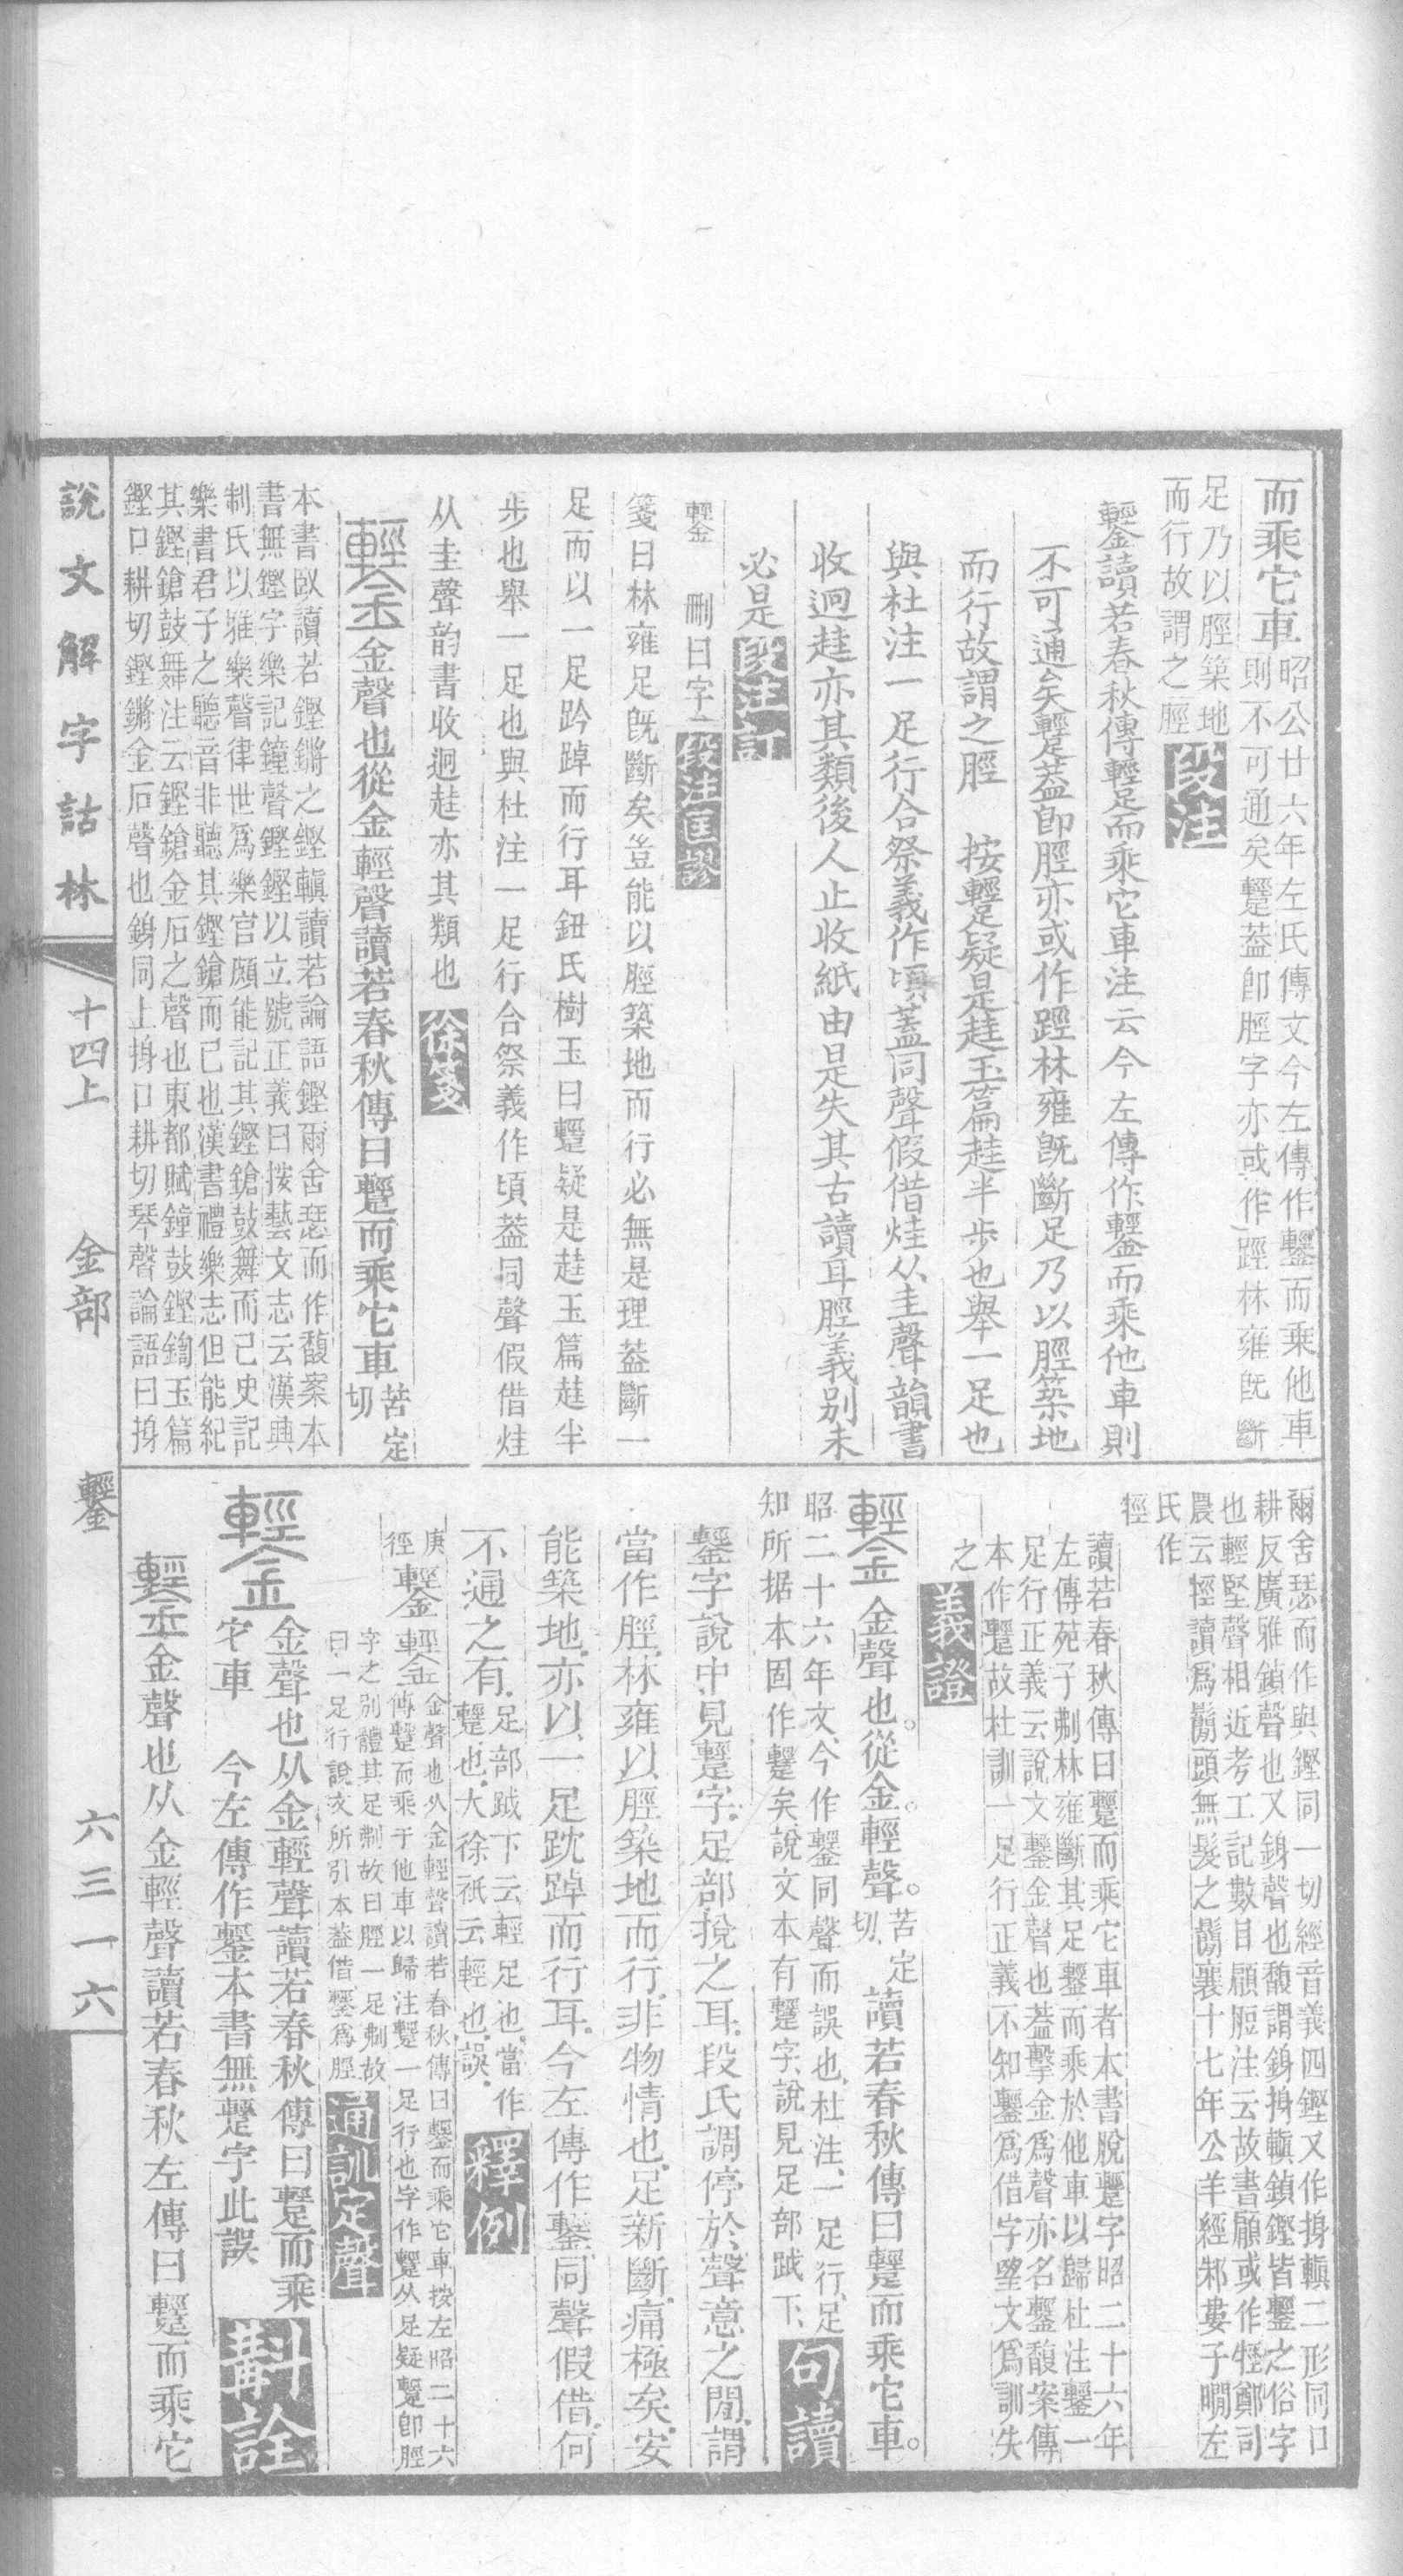 而乘它車昭公廿六年左氏傳文今左傳作鑋而乘他車
則不可通矣躗葢卽脛字亦或作踁林雍旣斷
足乃以脛築地
而行故謂之脛段注
鑋讀若春秋傳躗而乘它車注云今左傳作鑋而乘他車則
不可通矣躗葢卽脛亦或作踁林雍旣斷足乃以脛築地
而行故謂之脛 按躗疑是䞨玉篇䞨半步也舉一足也
與杜注一足行合祭義作頃葢同聲假借烓从圭聲韻書
收迥䞨亦其類後人止收紙由是失其古讀耳脛義别未
必是段注訂
鑋 刪曰字段注匡謬
箋曰林雍足旣斷矣豈能以脛築地而行必無是理葢斷一
足而以一足趻踔而行耳鈕氏樹玉曰躗疑是䞨玉篇䞨半
步也舉一足也與杜注一足行合祭義作頃葢同聲假借烓
从圭聲韵書收迥䞨亦其類也徐箋
鑋金聲也從金輕聲讀若春秋傳曰躗而乘它車苦定
切
本書臤讀若鏗鏘之鏗轒讀若論語鏗爾舍瑟而作馥案本
書無鏗字樂記鐘聲鏗鏗以立號正義曰按藝文志云漢興
制氏以雅樂聲律世爲樂官頗能記其鏗鎗鼓舞而已史記
樂書君子之聽音非聽其鏗鎗而已也漢書禮樂志但能紀
其鏗鎗鼓舞注云鏗鎗金石之聲也東都賦鐘鼓鏗鍧玉篇
鏗口耕切鏗鏘金石聲也銵同上摼口耕切琴聲論語曰摼
爾舍瑟而作與鏗同一切經音義四鏗又作摼轒二形同口
耕反廣雅鎖聲也又銵聲也馥謂銵摼轒鎖鏗皆鑋之俗字
也輕堅聲相近考工記數目顅脰注云故書顅或作牼鄭司
農云牼讀爲鬜頭無髮之鬜襄十七年公羊經邾婁子瞯左
氏作
牼
讀若春秋傳曰躗而乘它車者本書脫躗字昭二十六年
左傳苑子剕林雍斷其足鑋而乘於他車以歸杜注鑋一
足行正義云說文鑋金聲也葢擊金爲聲亦名鑋馥案傳
本作躗故杜訓一足行正義不知鑋爲借字望文爲訓失
之義證
鑋金聲也。從金。輕聲。苦定
切讀若春秋傳曰躗而乘它車。
昭二十六年文今作鑋同聲而誤也杜注一足行足
知所据本固作躗矣說文本有躗字說見足部跛下句讀
鑋字說中見躗字足部挩之耳段氏調停於聲意之閒謂
當作脛林雍以脛築地而行非物情也足新斷痛極矣安
能築地亦以一足趻踔而行耳今左傳作鑋同聲假借何
不通之有足部跛下云輕足也當作
躗也大徐祇云輕也誤釋例
庚
徑鑋鑋金聲也从金輕聲讀若春秋傳曰鑋而乘它車按左昭二十六
傳躗而乘于他車以歸注躗一足行也字作躗从足疑躗卽脛
字之别體其足剕故曰脛一足剕故
曰一足行說文所引本葢借鑋爲脛通訓定聲
鑋金聲也从金輕聲讀若春秋傳曰躗而乘
它車 今左傳作鑋本書無躗字此誤斠詮
鑋金聲也从金輕聲讀若春秋左傳曰躗而乘它
說文解字詁林
十四上 金部 鑋 六三一六